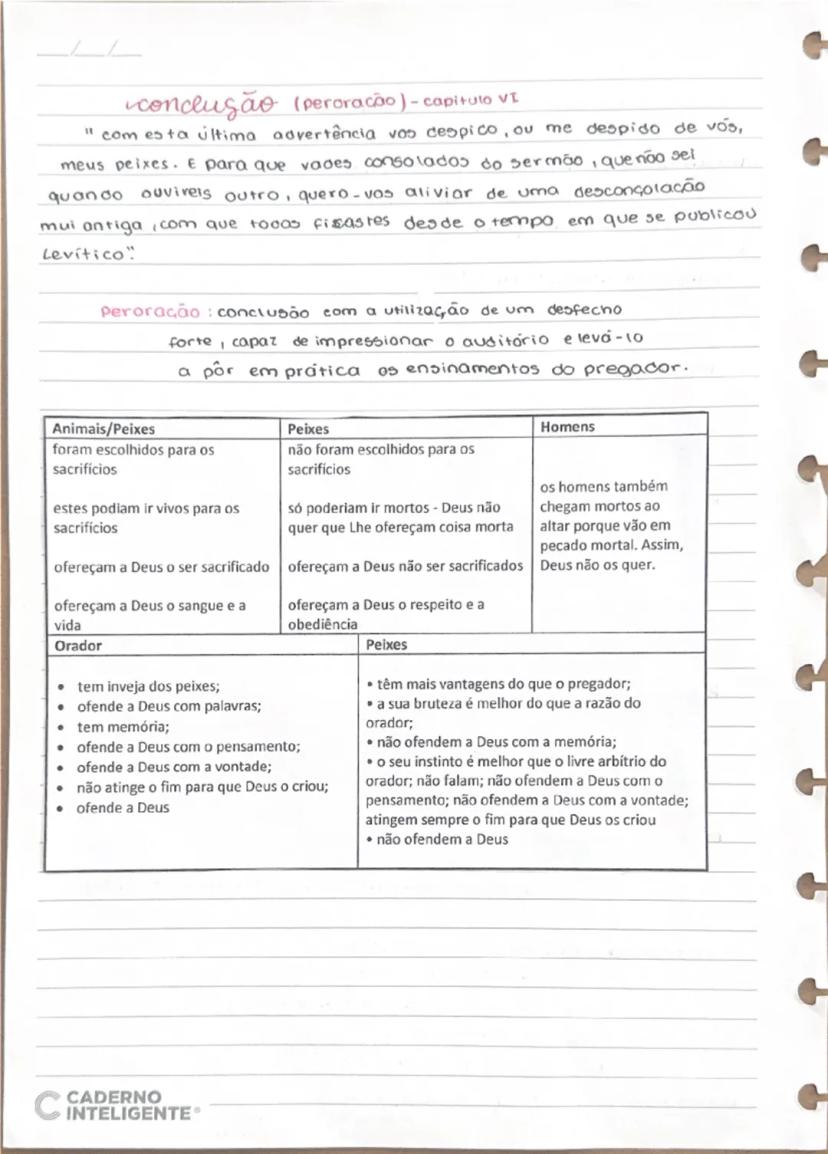 conclusão (peroração) - capitulo VI
" com esta última advertência vos despico, ou me despido de vós,
meus peixes. E para que vades consolados do sermão, que não sei
quando ouvireis outro, quero-vos aliviar de uma desconsolação
mui antiga, com que todos ficastes desde o tempo em que se publicou
Levítico".
peroração : conclusão com a utilização de um desfecho
forte, capaz de impressionar o auditório e levá-lo
a pôr em prática os ensinamentos do pregador.
Animais/Peixes
foram escolhidos para os
sacrifícios
estes podiam ir vivos para os
sacrifícios
ofereçam a Deus o ser sacrificado
ofereçam a Deus o sangue e a
vida
Peixes
não foram escolhidos para os
sacrifícios
só poderiam ir mortos - Deus não
quer que Lhe ofereçam coisa morta
ofereçam a Deus não ser sacrificados
ofereçam a Deus o respeito e a
obediência
Homens
os homens também
chegam mortos ao
altar porque vão em
pecado mortal. Assim,
Deus não os quer.
Orador
• tem inveja dos peixes;
• ofende a Deus com palavras;
• tem memória;
• ofende a Deus com o pensamento;
• ofende a Deus com a vontade;
• não atinge o fim para que Deus o criou;
• ofende a Deus
Peixes
• têm mais vantagens do que o pregador;
• a sua bruteza é melhor do que a razão do
orador;
• não ofendem a Deus com a memória;
• o seu instinto é melhor que o livre arbítrio do
orador; não falam; não ofendem a Deus com o
pensamento; não ofendem a Deus com a vontade;
atingem sempre o fim para que Deus os criou
• não ofendem a Deus
CADERNO
INTELIGENTE®